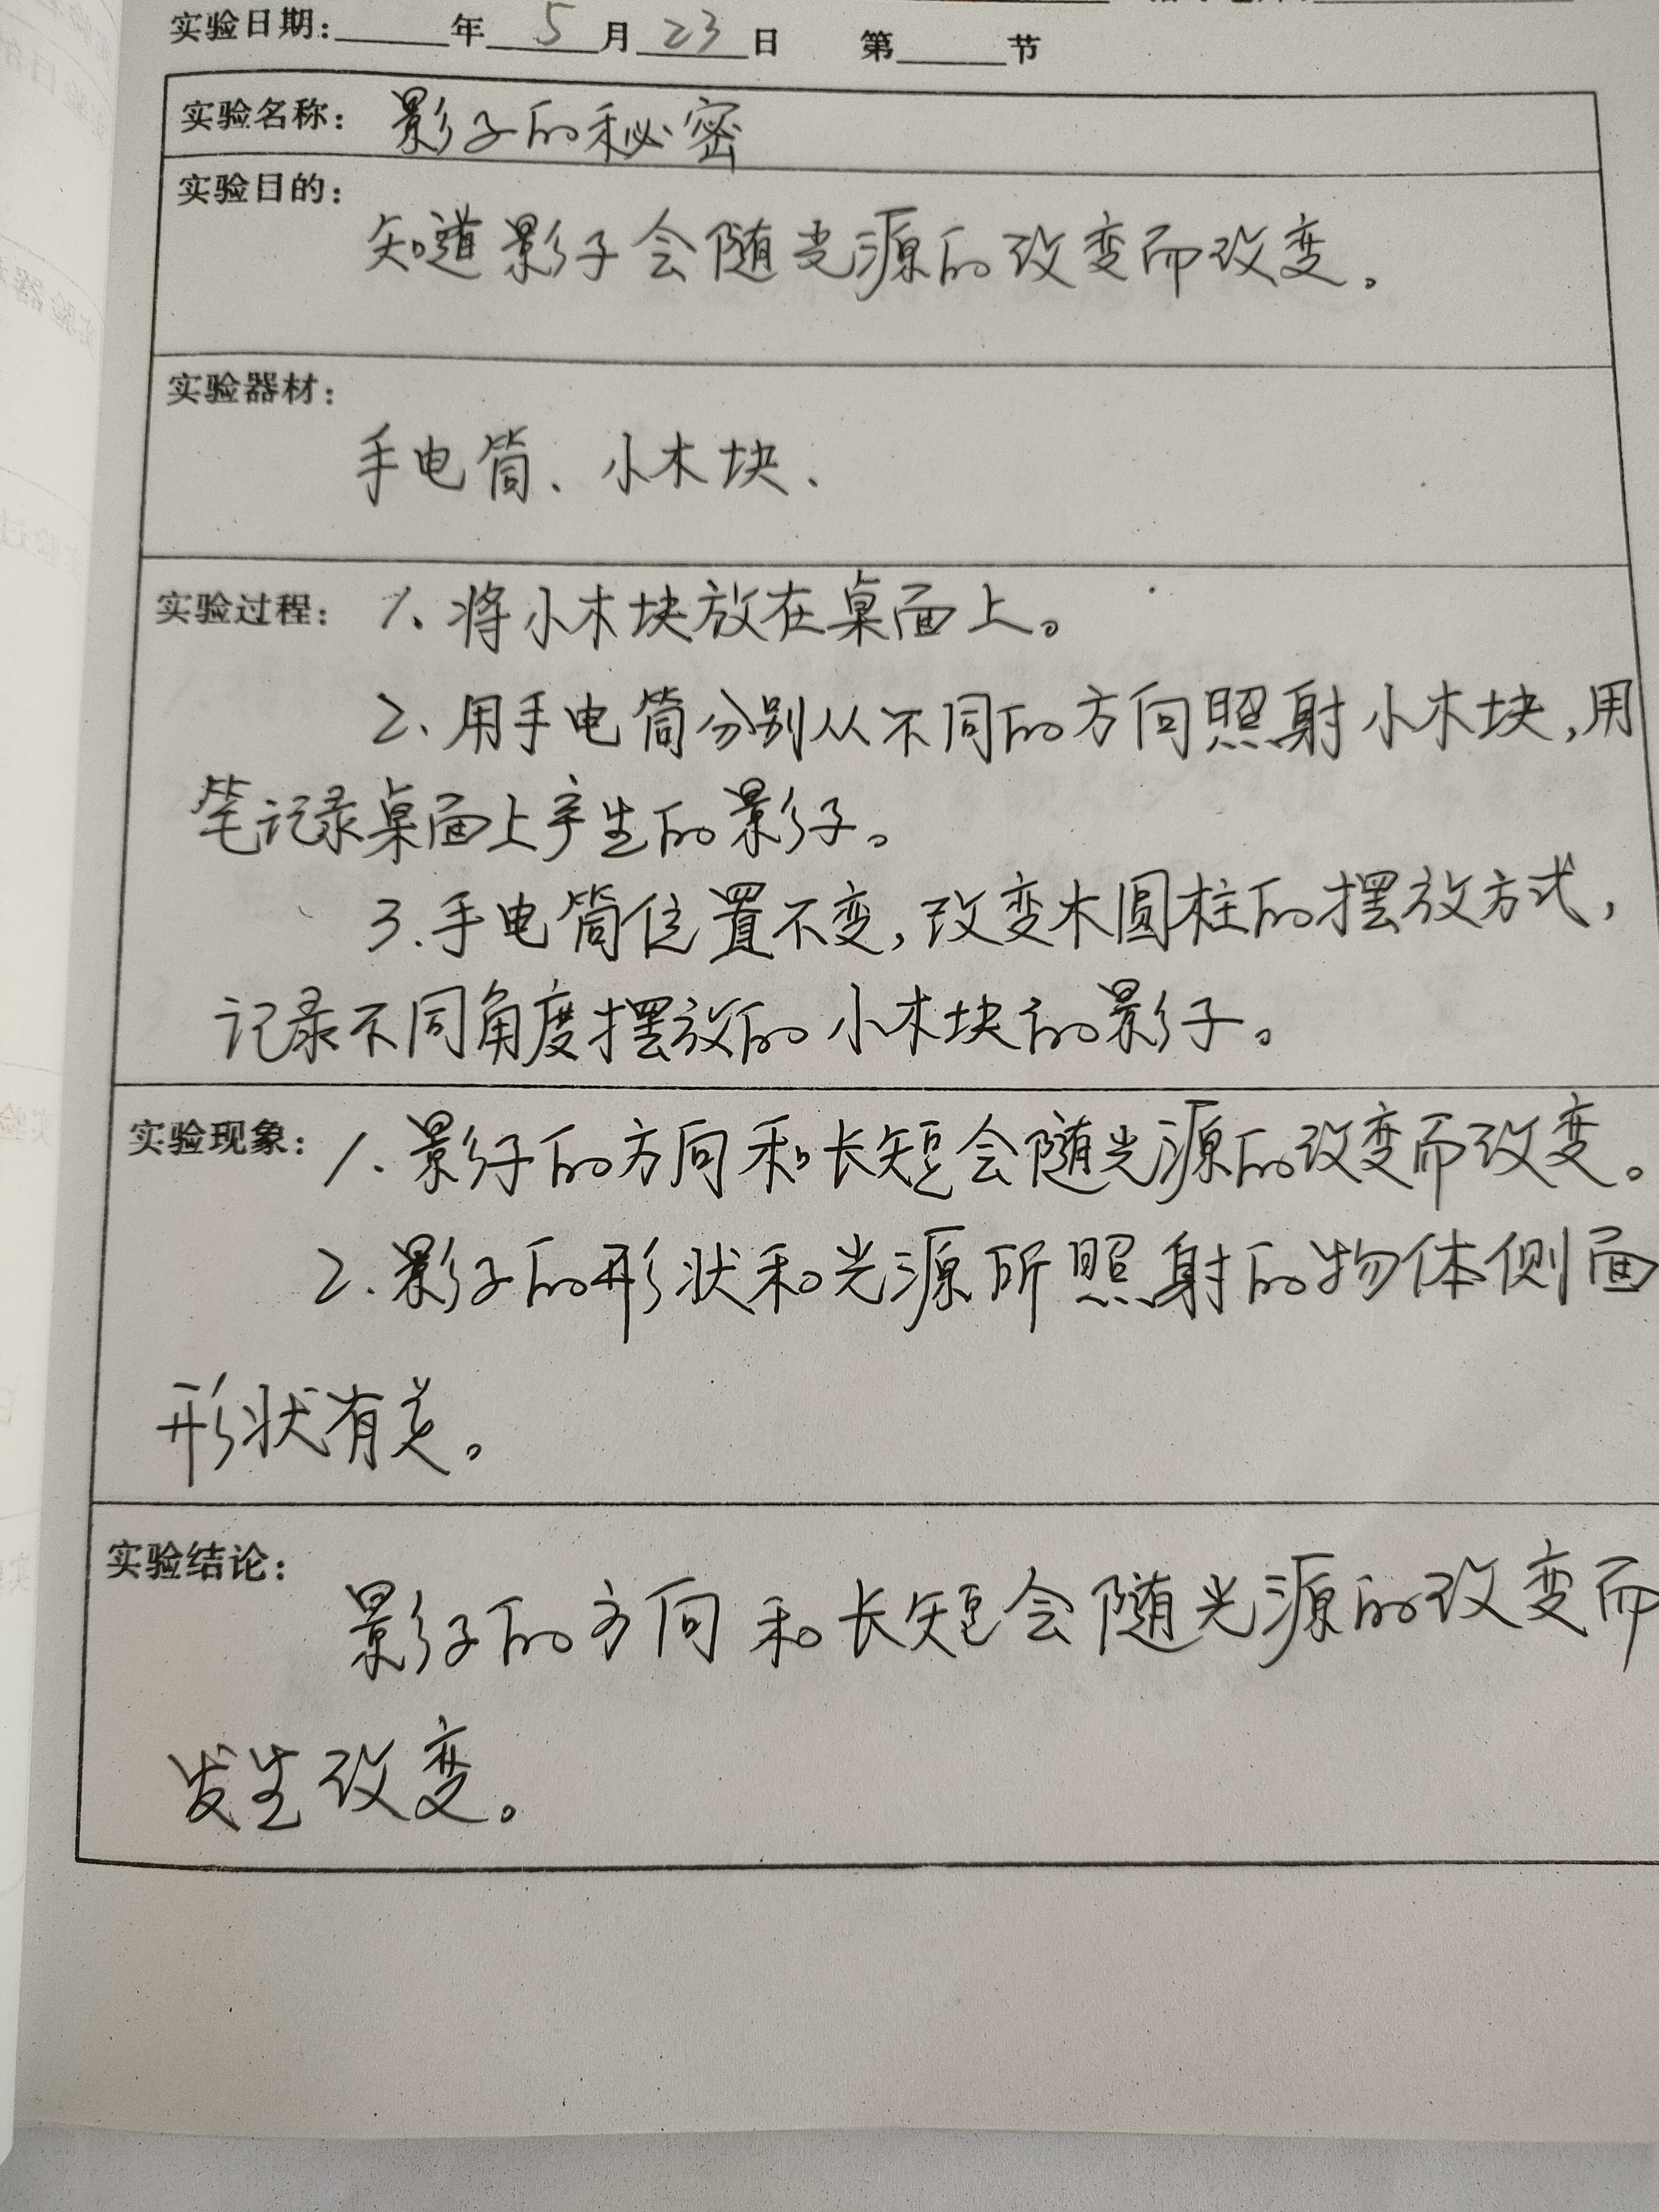 实验日期:______年__5__月__23__日 第______节
实验名称: 影子的秘密
实验目的:
知道影子会随光源的改变而改变。
实验器材:
手电筒、小木块、
实验过程: 1、将小木块放在桌面上。
2、用手电筒分别从不同的方向照射小木块,用
笔记录桌面上产生的影子。
3.手电筒位置不变,改变木圆柱的摆放方式,
记录不同角度摆放的小木块的影子。
实验现象: 1.影子的方向和长短会随光源的改变而改变。
2.影子的形状和光源所照射的物体侧面
形状有关。
实验结论:
影子的方向和长短会随光源的改变而
发生改变。